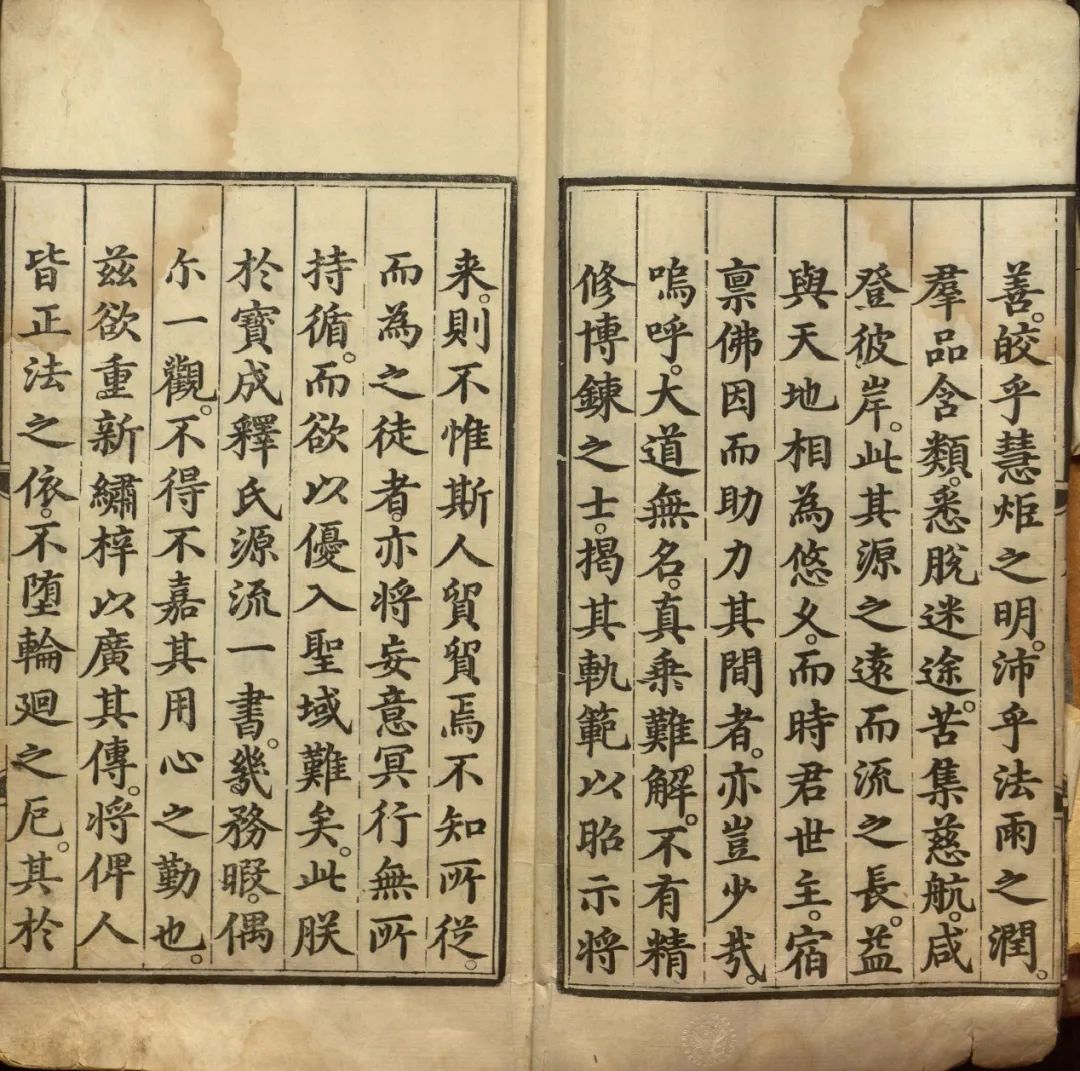 善。皎乎慧炬之明。沛乎法雨之潤。
羣品含類。悉脫迷途。苦集慈航。咸
登彼岸。此其源之遠而流之長。益
與天地相為悠久。而時君世主。宿
禀佛因而助力其間者。亦豈少哉。
嗚呼。大道無名。真乗難解。不有精
修博鍊之士。揭其軌範以昭示将
来。則不惟斯人貿貿焉不知所從。
而為之徒者。亦将妄意冥行無所
持循。而欲以優入聖域難矣。此朕
於寶成釋氏源流一書。幾務暇。偶
尓一觀。不得不嘉其用心之勤也。
兹欲重新繡梓以廣其傳。将俾人
皆正法之依。不堕輪廻之厄。其於